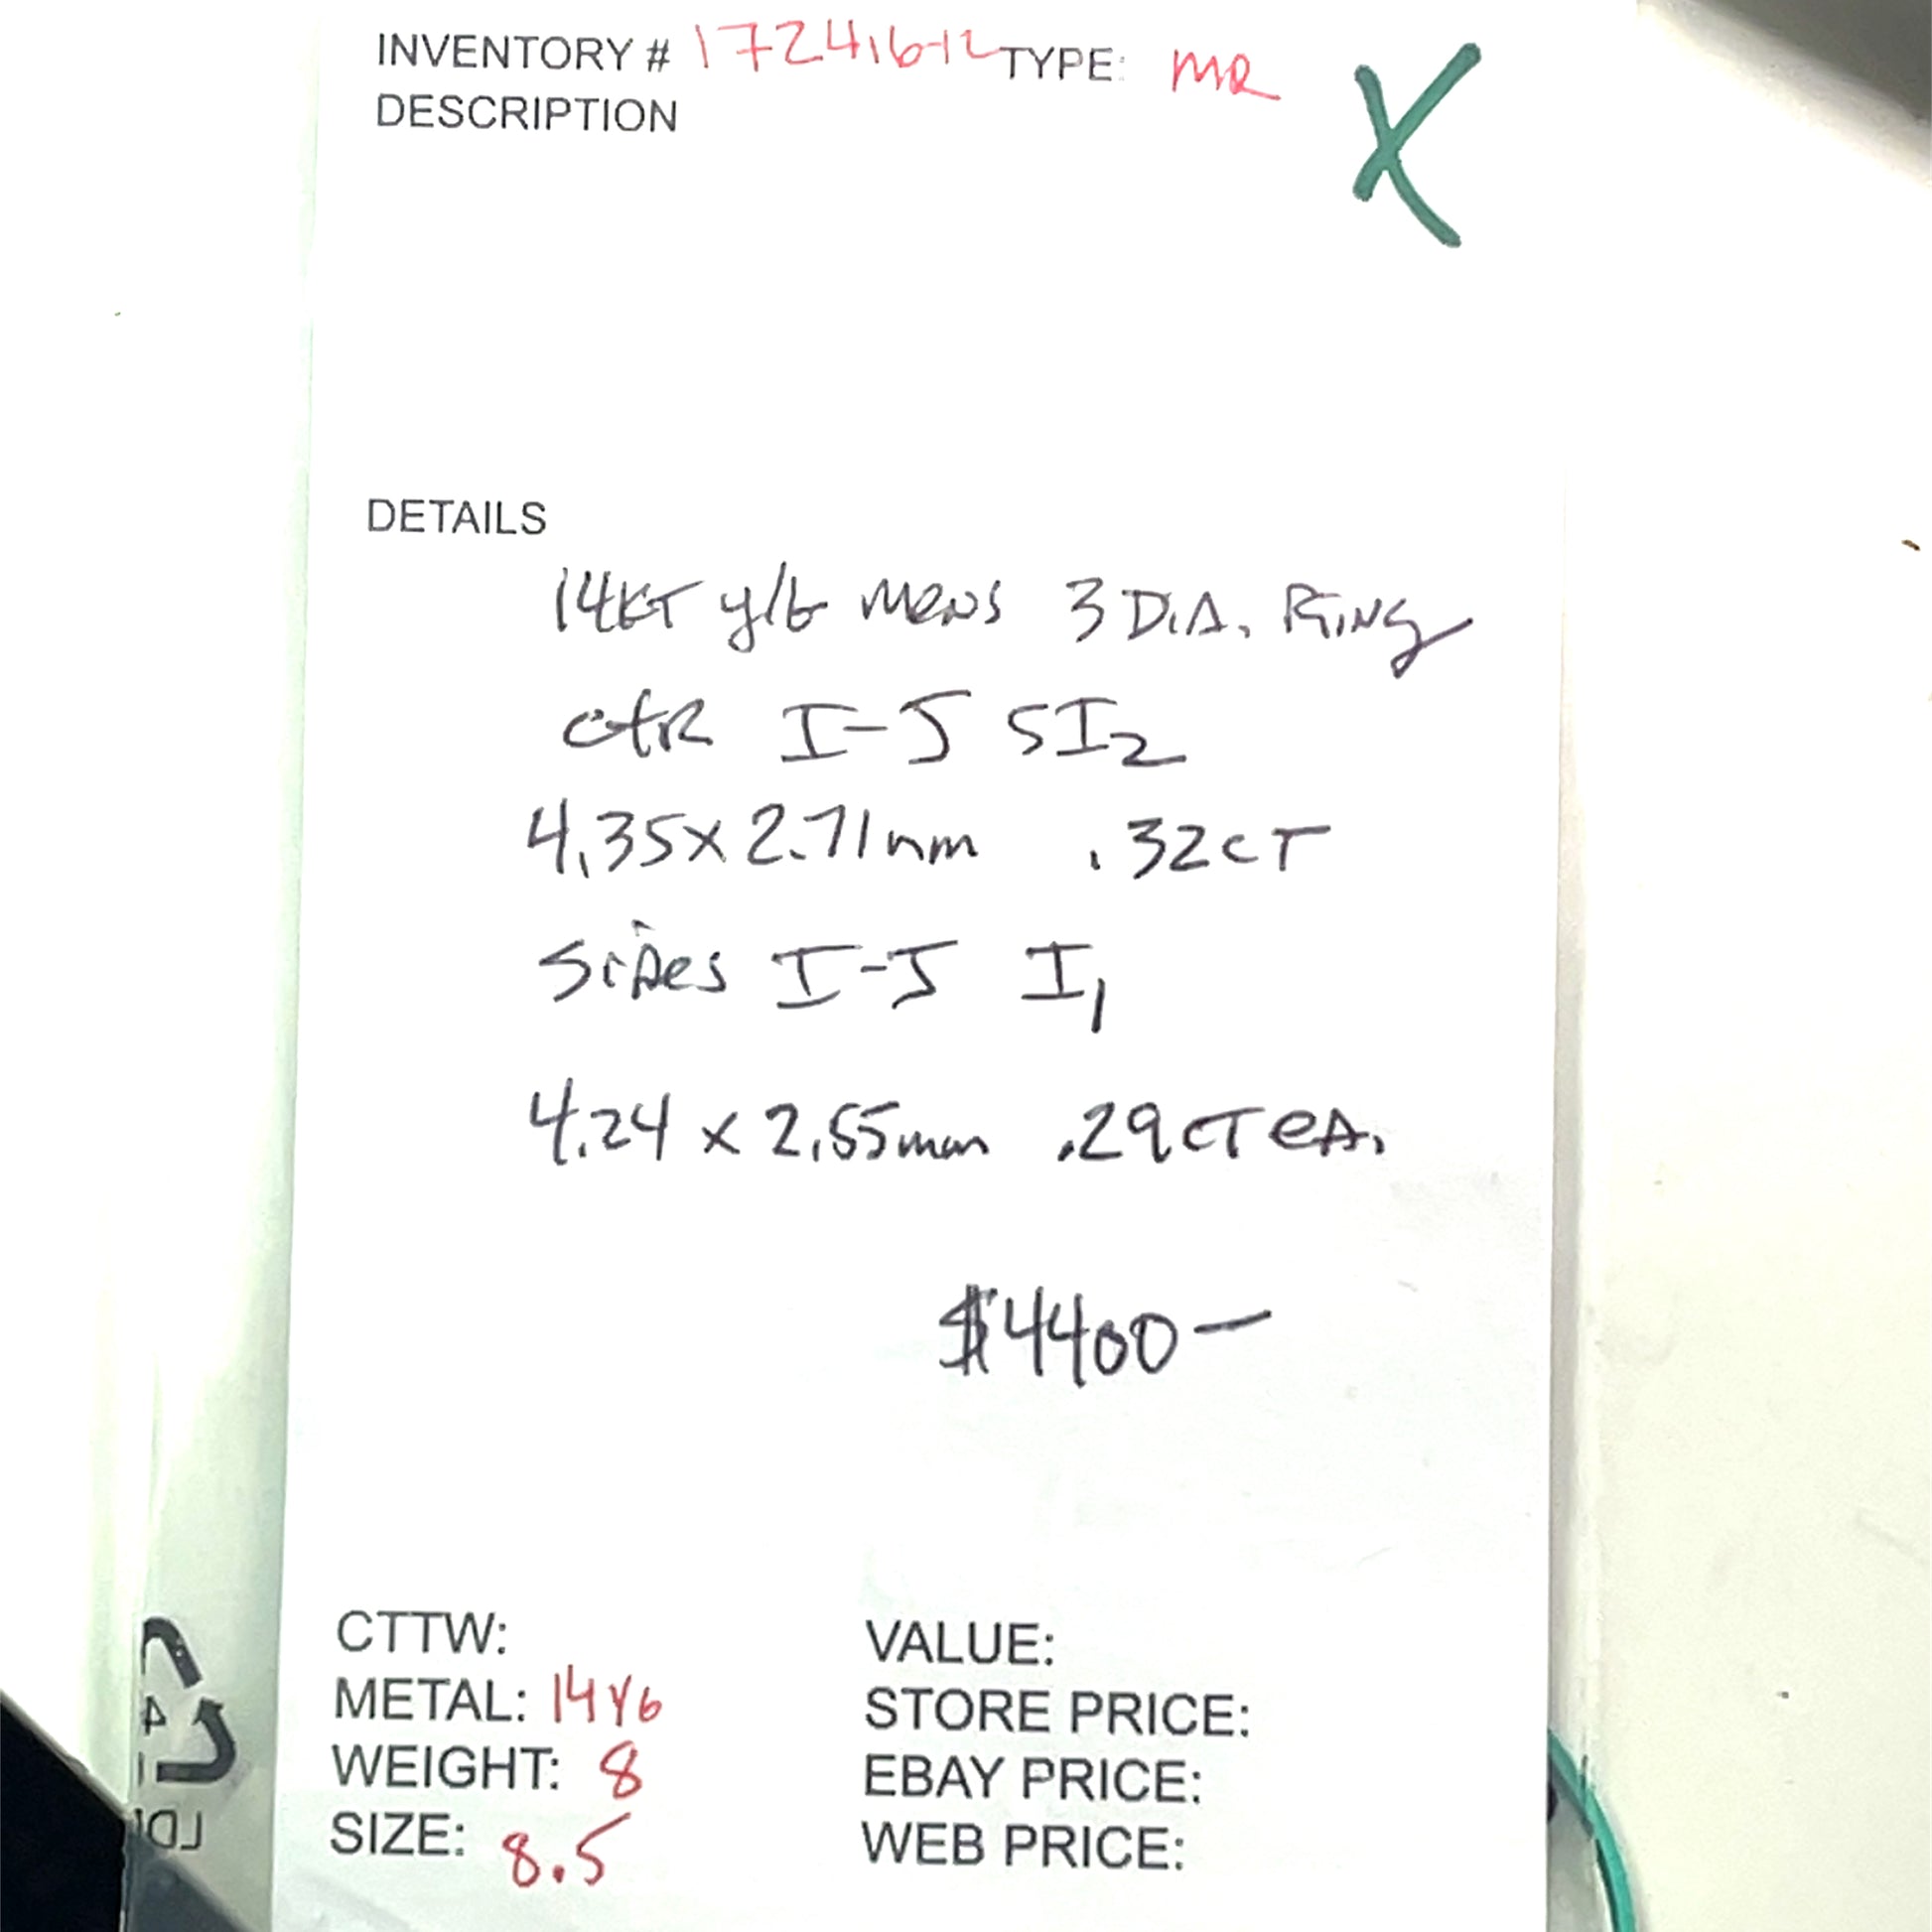 INVENTORY # 172416-12 TYPE: MR
DESCRIPTION
X
DETAILS
14KT y/G Mens 3 DIA. RiNg
ctR I-J SI2
4.35x2.71mm .32CT
SiDes I-J I1
4.24 x 2.55mm .29CT eA.
$4400-
CTTW:
METAL: 14YG
WEIGHT: 8
SIZE: 8.5
VALUE:
STORE PRICE:
EBAY PRICE:
WEB PRICE:
4